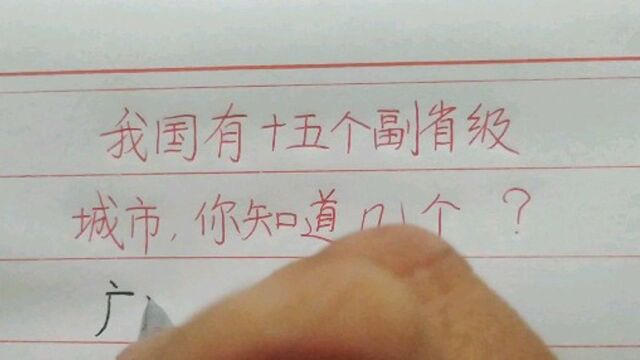 我国有十五个副省级
城市，你知道几个？
广